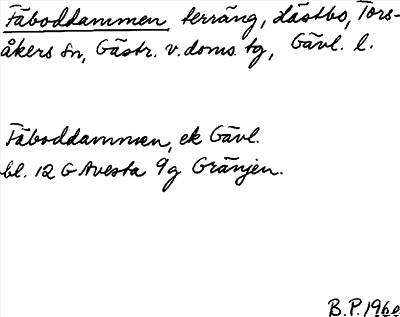 Fäboddammen, terräng, Hästbo, Tors-
åkers sn, Gästr. v. doms. tg, Gävl. l.
Fäboddammen, ek Gävl.
bl. 12 G Avesta 9g Gränjen.
B.P. 1960